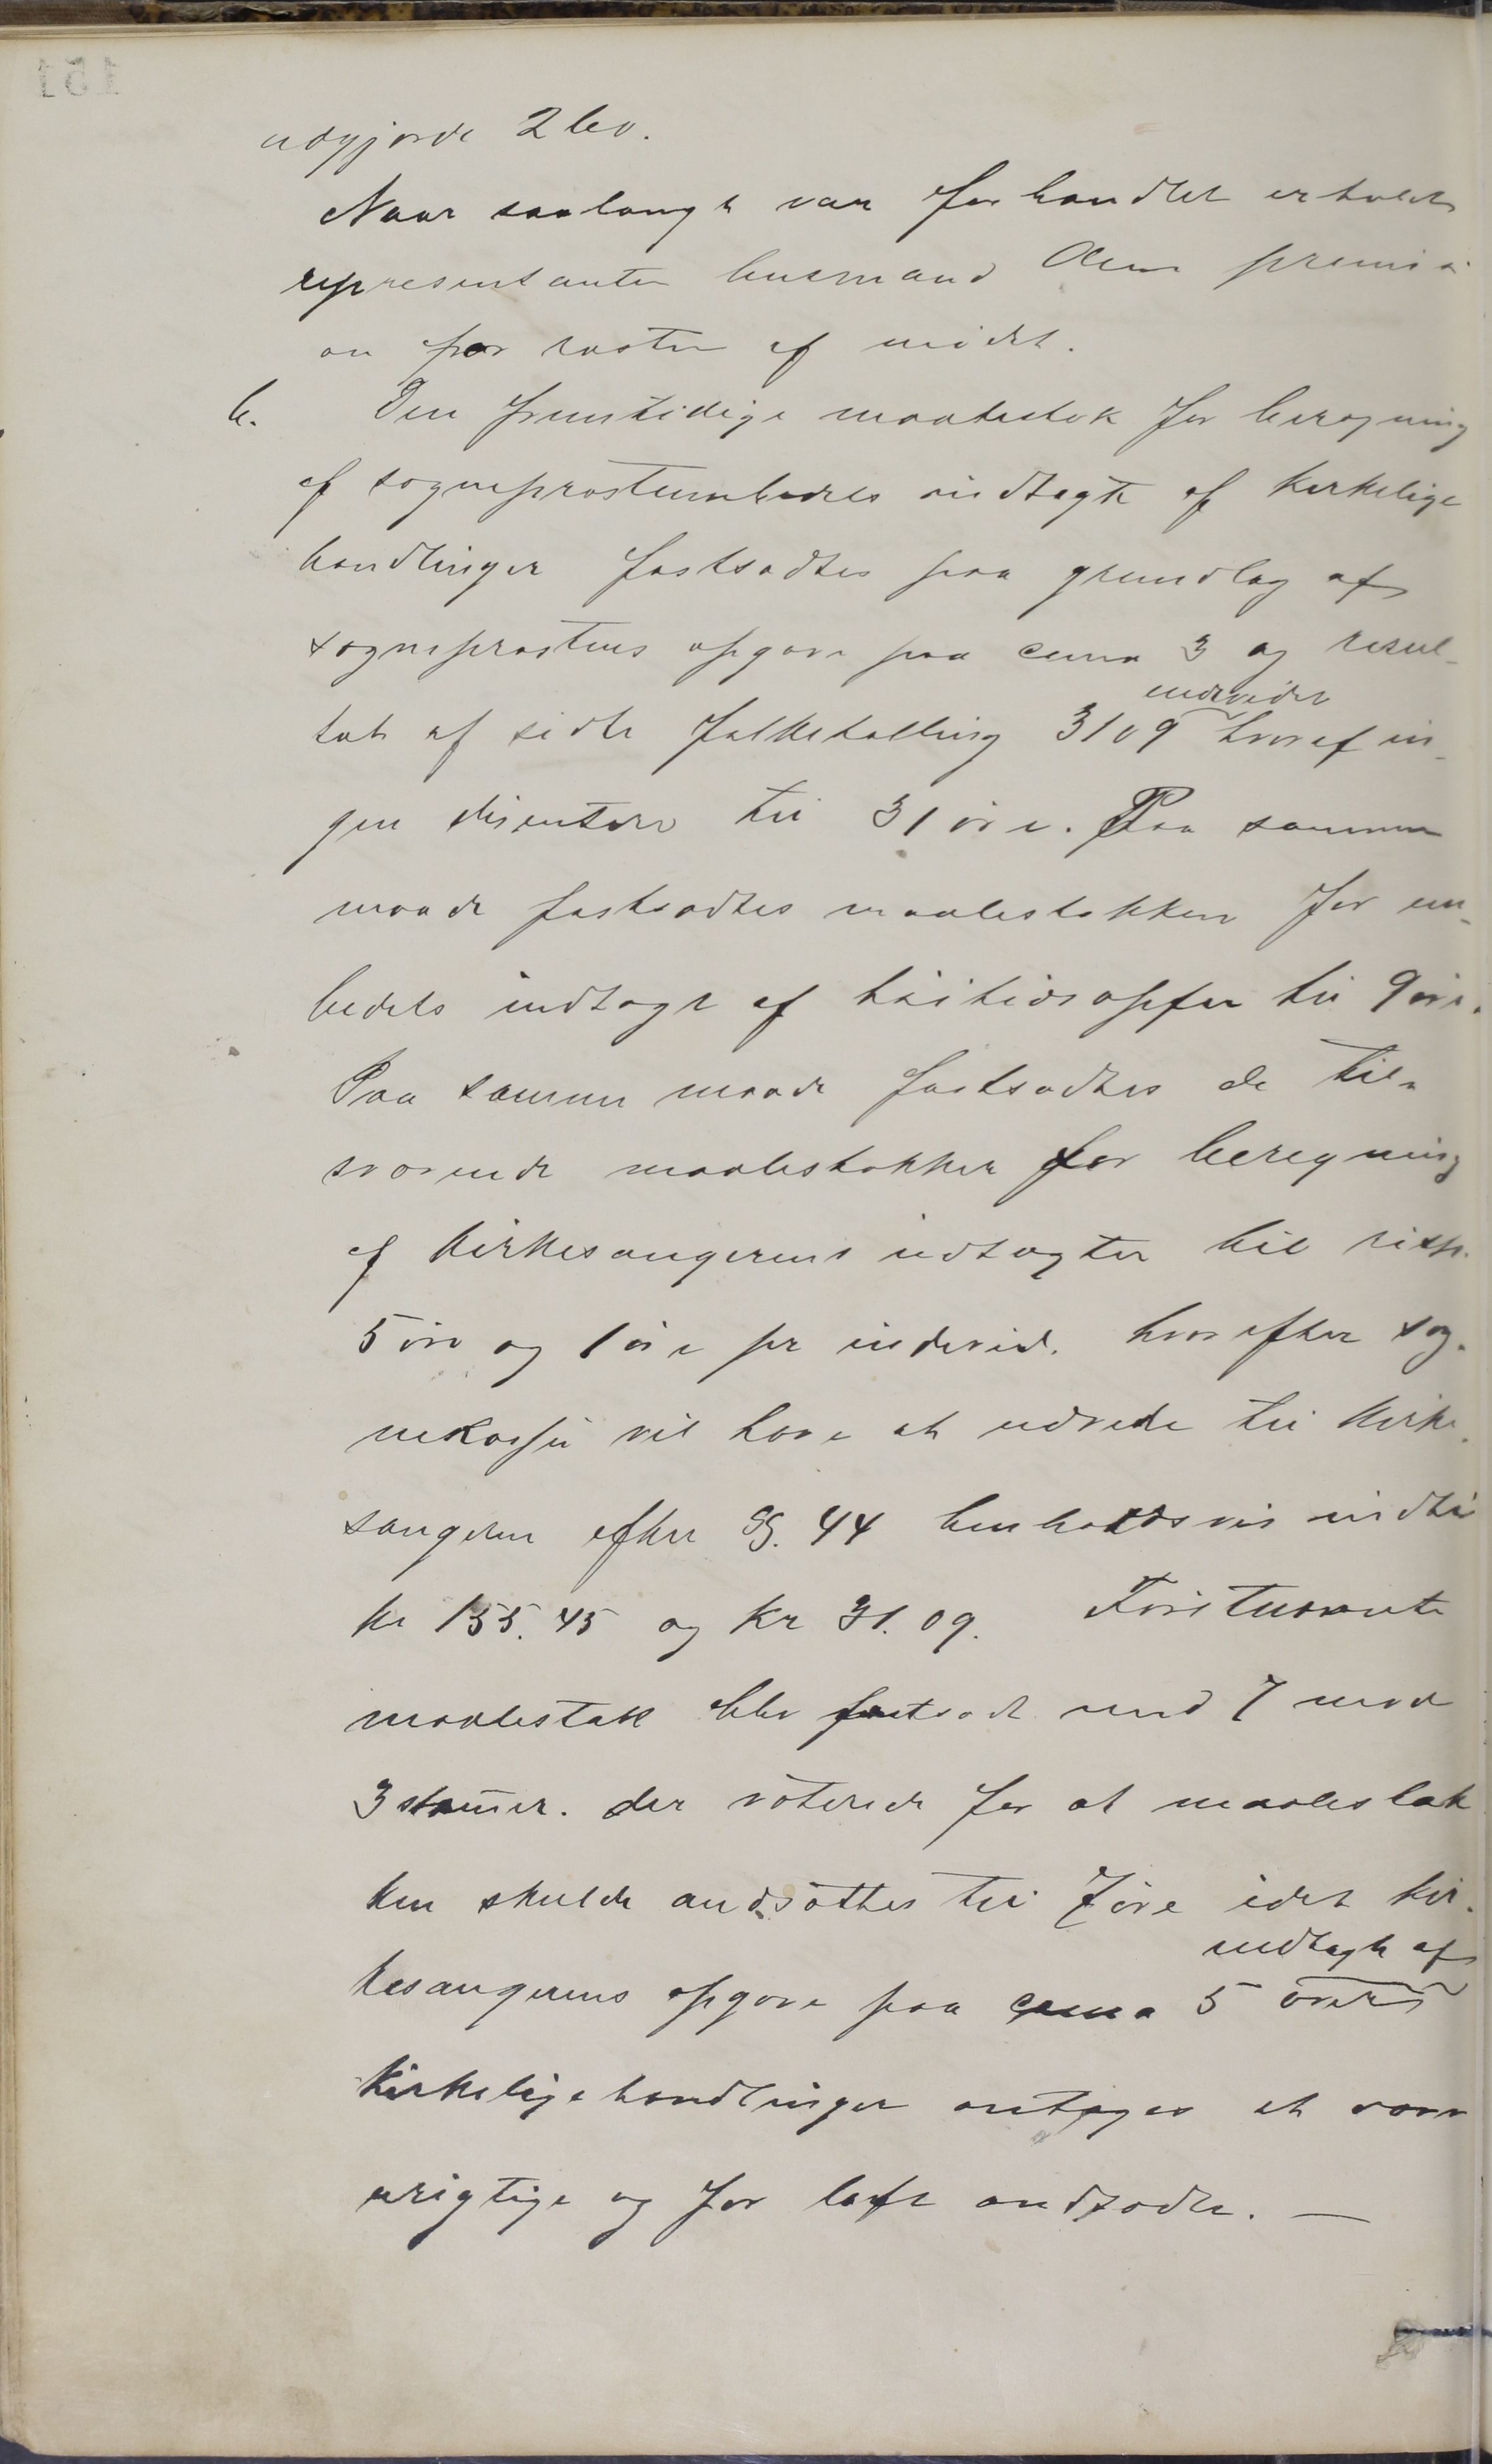 udgjorde 2 lev.
Naar saalangt var forhandlet erholdt
representanten husmand Olsen permisi
on for resten af mödet.
b. Den fremtidige maalestok for beregning
af sogneprestembedets indtægt af kirkelige
handlinger fastsadtes paa grundlag af
sogneprestens opgave paa cema 3 og resul-
tat af sidste folketælling 3109 individer hvoraf in-
gen disentere til 31 öre. Paa samme
maade fastsadtes maalestokken for em-
bedets indtægt af höitidsoffer til 9 öre.
Paa samme maade fastsadtes de til-
svarende maalestokker for beregning
af kirkesangerens indtægter til resp.
5 öre og 1 öre pr individ. hvorefter sog-
nekassen vil have at udrede til kirke-
sangeren efter §. 44 henholdsvis indtil
kr 155.45 og kr 31.09. Förstnævnte
maalestok blev fastsadt med 7 mod
3 stem̄er. der voterede for at maalestok
ken skulde andsættes til 7 öre idet kir-
kesangerens opgave paa cema 5 over indtægt af
kirkelige handlinger antages at være
urigtige og for lavt andsadte. —